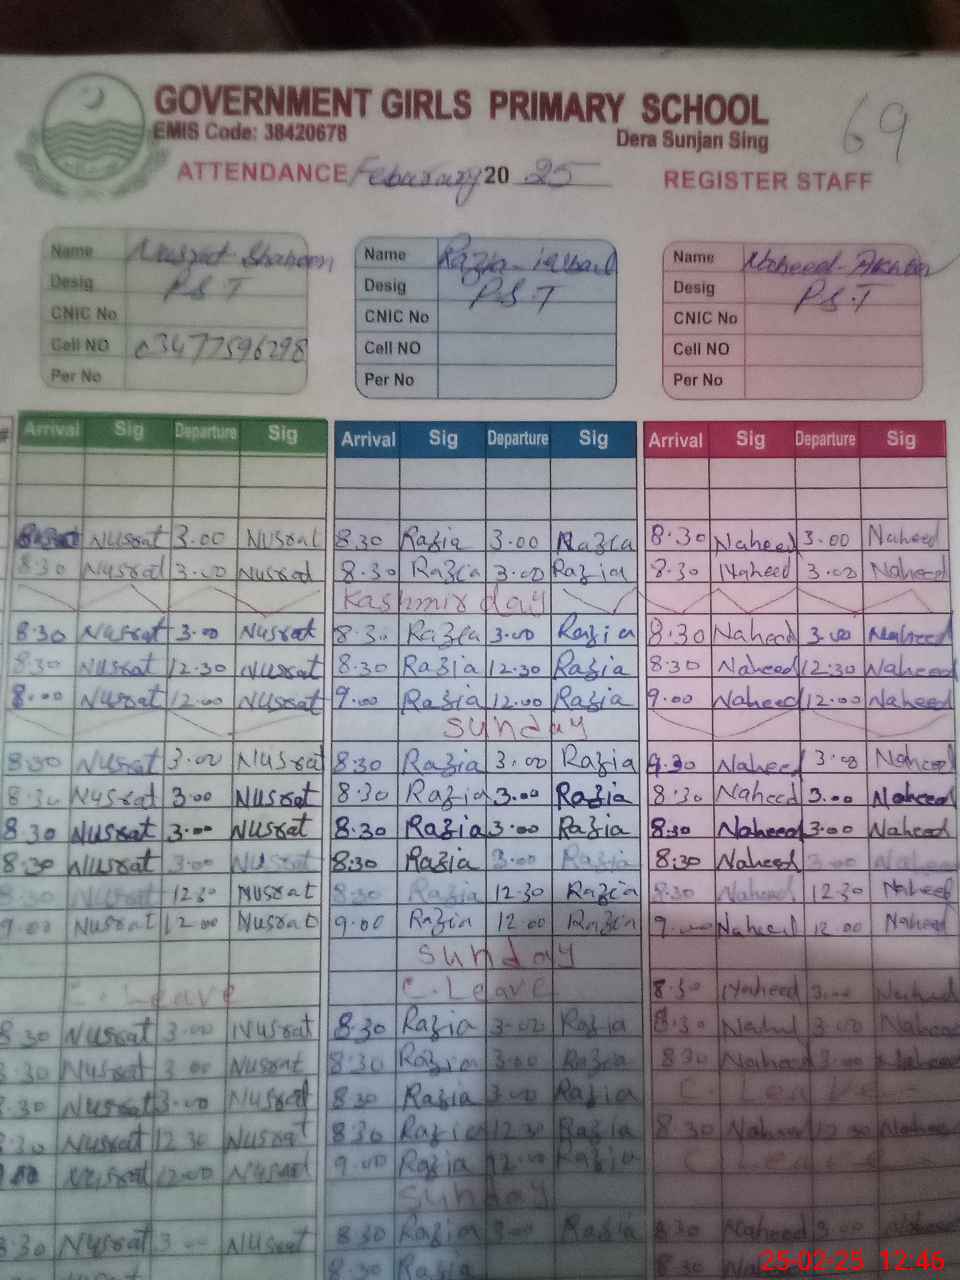 GOVERNMENT GIRLS PRIMARY SCHOOL
69
EMIS Code: 38420678 Dera Sunjan Sing
ATTENDANCE Febarary 20 25 REGISTER STAFF
Name Nusrat Shaheen Name Razia Name Naheed
Desig P.S.T Desig P.S.T Desig P.S.T
CNIC No CNIC No CNIC No
Cell NO 03477596298 Cell NO Cell NO
Per No Per No Per No
# Arrival Sig Departure Sig Arrival Sig Departure Sig Arrival Sig Departure Sig
8:30 Nusrat 3.00 Nusrat 8.30 Razia 3.00 Razia 8.30 Naheed 3.00 Naheed
8:30 Nusrat 3.00 Nusrat 8.30 Razia 3.00 Razia 8.30 Naheed 3.00 Naheed
Kashmir day
8:30 Nusrat 3.00 Nusrat 8.30 Razia 3.00 Razia 8.30 Naheed 3.00 Naheed
8:30 Nusrat 12.30 Nusrat 8.30 Razia 12.30 Razia 8.30 Naheed 12.30 Naheed
8:00 Nusrat 12.00 Nusrat 9.00 Razia 12.00 Razia 9.00 Naheed 12.00 Naheed
Sunday
8:30 Nusrat 3.00 Nusrat 8.30 Razia 3.00 Razia 9.30 Naheed 3.00 Naheed
8:30 Nusrat 3.00 Nusrat 8.30 Razia 3.00 Razia 8.30 Naheed 3.00 Naheed
8:30 Nusrat 3.00 Nusrat 8.30 Razia 3.00 Razia 8:30 Naheed 3.00 Naheed
8:30 Nusrat 3.00 Nusrat 8:30 Razia 3.00 Razia 8:30 Naheed 3.00 Naheed
8:30 Nusrat 12.30 Nusrat 8:30 Razia 12.30 Razia 8:30 Naheed 12.30 Naheed
9.00 Nusrat 12.00 Nusrat 9.00 Razia 12.00 Razia 9.00 Naheed 12.00 Naheed
Sunday
C.Leave C.Leave 8:30 Naheed 3.00 Naheed
8:30 Nusrat 3.00 Nusrat 8.30 Razia 3.00 Razia 8:30 Naheed 3.00 Naheed
8:30 Nusrat 3.00 Nusrat 8:30 Razia 3.00 Razia 8:30 Naheed 3.00 Naheed
8:30 Nusrat 3.00 Nusrat 8:30 Razia 3.00 Razia C.Leave
8:30 Nusrat 12.30 Nusrat 8:30 Razia 12.30 Razia 8:30 Naheed 12.30 Naheed
Nusrat 12.00 Nusrat 9.00 Razia 12.00 Razia C.Leave
Sunday
8:30 Nusrat 3.00 Nusrat 8:30 Razia 3.00 Razia 8:30 Naheed 3.00
8:30 8:30
25-02-25 12:46